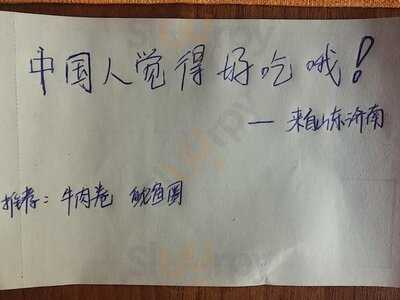 中国人觉得好吃哦！
— 来自山东济南
推荐：牛肉卷 鱿鱼圈